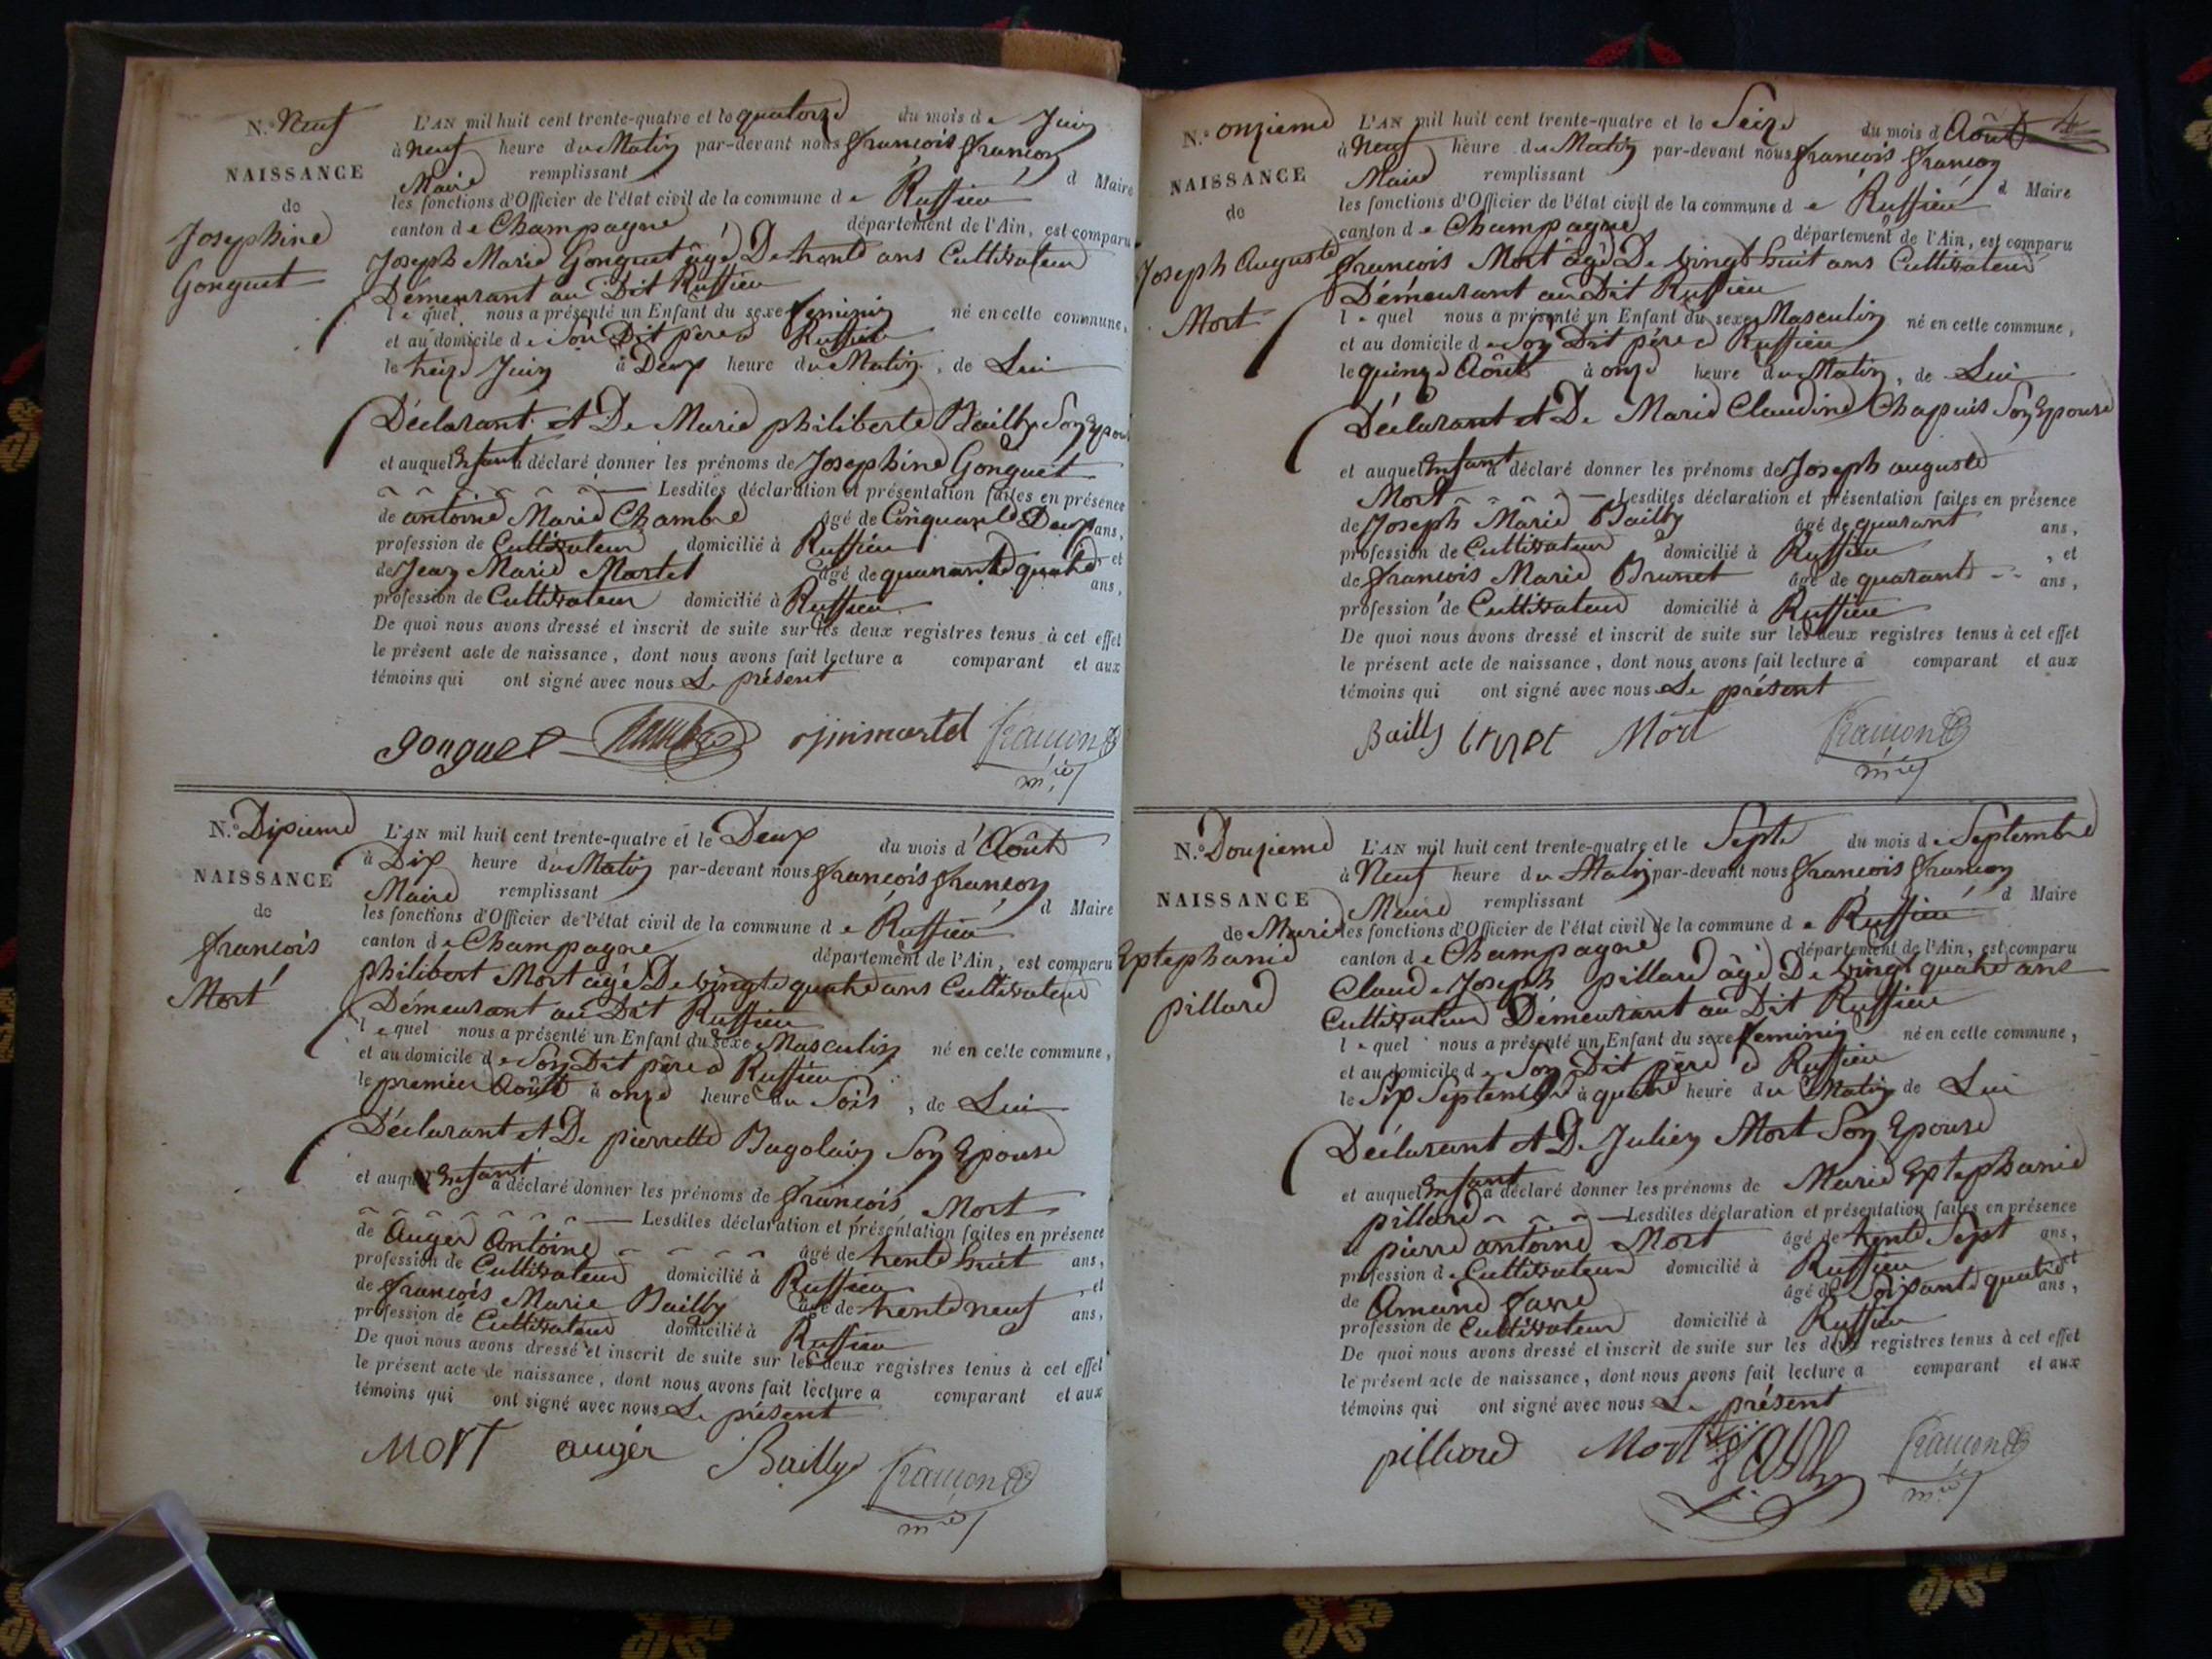 N.o Neuf
NAISSANCE
de
Josephine
Gonguet
L'AN mil huit cent trente-quatre et le quatorze du mois de Juin
à neuf heure du Matin par-devant nous françois françon
Maire remplissant d Maire
les fonctions d'Officier de l'état civil de la commune de Ruffieu
canton de Champagne département de l'Ain, est comparu
Joseph Marie Gonguet âgé De trente ans Cultivateur
Démeurant au Dit Ruffieu
lequel nous a présenté un Enfant du sexe feminin né en cette commune,
et au domicile de Son Dit père a Ruffieu
le treize Juin à Deux heure du Matin, de Lui
Déclarant et De Marie philiberte Bailly Son Epouse
et auquel Enfant a déclaré donner les prénoms de Josephine Gonguet
Lesdites déclaration et présentation faites en présence
de antoine Marie Chambre âgé de Cinquante Deux ans,
profession de Cultivateur domicilié à Ruffieu et
de Jean Marie Martel âgé de quarante quatre ans,
profession de Cultivateur domicilié à Ruffieu
De quoi nous avons dressé et inscrit de suite sur les deux registres tenus à cet effet
le présent acte de naissance, dont nous avons fait lecture a comparant et aux
témoins qui ont signé avec nous Le présent
gonguet martel françon
mre
N.o Dixieme
NAISSANCE
de
francois
Mort
L'AN mil huit cent trente-quatre et le Deux du mois d'Août
à Dix heure du Matin par-devant nous françois françon
Maire remplissant d Maire
les fonctions d'Officier de l'état civil de la commune de Ruffieu
canton de Champagne département de l'Ain, est comparu
philibert Mort âgé De vingt quatre ans Cultivateur
Démeurant au Dit Ruffieu
lequel nous a présenté un Enfant du sexe Masculin né en cette commune,
et au domicile de Son Dit père a Ruffieu
le premier Août à onze heure du Soir, de Lui
Déclarant et De pierrette Bugolain Son Epouse
et auquel Enfant a déclaré donner les prénoms de françois Mort
Lesdites déclaration et présentation faites en présence
de Auger Antoine âgé de trente huit ans,
profession de Cultivateur domicilié à Ruffieu, et
de françois Marie Bailly âgé de trente neuf ans,
profession de Cultivateur domicilié à Ruffieu
De quoi nous avons dressé et inscrit de suite sur les deux registres tenus à cet effet
le présent acte de naissance, dont nous avons fait lecture a comparant et aux
témoins qui ont signé avec nous Le présent
MORT auger Bailly françon
mre
4
N.o onzieme
NAISSANCE
de
Joseph Auguste
Mort
L'AN mil huit cent trente-quatre et le Seize du mois d Août
à Neuf heure du Matin par-devant nous françois françon
Maire remplissant d Maire
les fonctions d'Officier de l'état civil de la commune de Ruffieu
canton de Champagne département de l'Ain, est comparu
francois Mort âgé De vingt huit ans Cultivateur
Démeurant au Dit Ruffieu
lequel nous a présenté un Enfant du sexe Masculin né en cette commune,
et au domicile de Son Dit père a Ruffieu
le quinze Août à onze heure du Matin, de Lui
Déclarant et De Marie Claudine Chapuis Son Epouse
et auquel Enfant a déclaré donner les prénoms de Joseph auguste
Mort Lesdites déclaration et présentation faites en présence
de Joseph Marie Bailly âgé de quarant ans,
profession de Cultivateur domicilié à Ruffieu, et
de françois Marie Brunet âgé de quarante ans,
profession de Cultivateur domicilié à Ruffieu
De quoi nous avons dressé et inscrit de suite sur les deux registres tenus à cet effet
le présent acte de naissance, dont nous avons fait lecture a comparant et aux
témoins qui ont signé avec nous Le présent
Bailly Mort françon
mre
N.o Douzieme
NAISSANCE
de Marie
Extephanie
pillard
L'AN mil huit cent trente-quatre et le Sept du mois de Septembre
à Neuf heure du Matin par-devant nous françois françon
Maire remplissant d Maire
les fonctions d'Officier de l'état civil de la commune de Ruffieu
canton de Champagne département de l'Ain, est comparu
Claude Joseph pillard âgé De vingt quatre ans
Cultivateur Démeurant au Dit Ruffieu
lequel nous a présenté un Enfant du sexe feminin né en cette commune,
et au domicile de Son Dit père a Ruffieu
le Six Septembre à quatre heure du Matin de Lui
Déclarant et De Julien Mort Son Epouse
et auquel Enfant a déclaré donner les prénoms de Marie Extephanie
pillard Lesdites déclaration et présentation faites en présence
de pierre antoine Mort âgé de trente Sept ans,
profession de Cultivateur domicilié à Ruffieu et
de Amand favre âgé de Soixante quatre ans,
profession de Cultivateur domicilié à Ruffieu
De quoi nous avons dressé et inscrit de suite sur les deux registres tenus à cet effet
le présent acte de naissance, dont nous avons fait lecture a comparant et aux
témoins qui ont signé avec nous Le présent
pilliard Mort françon
mre